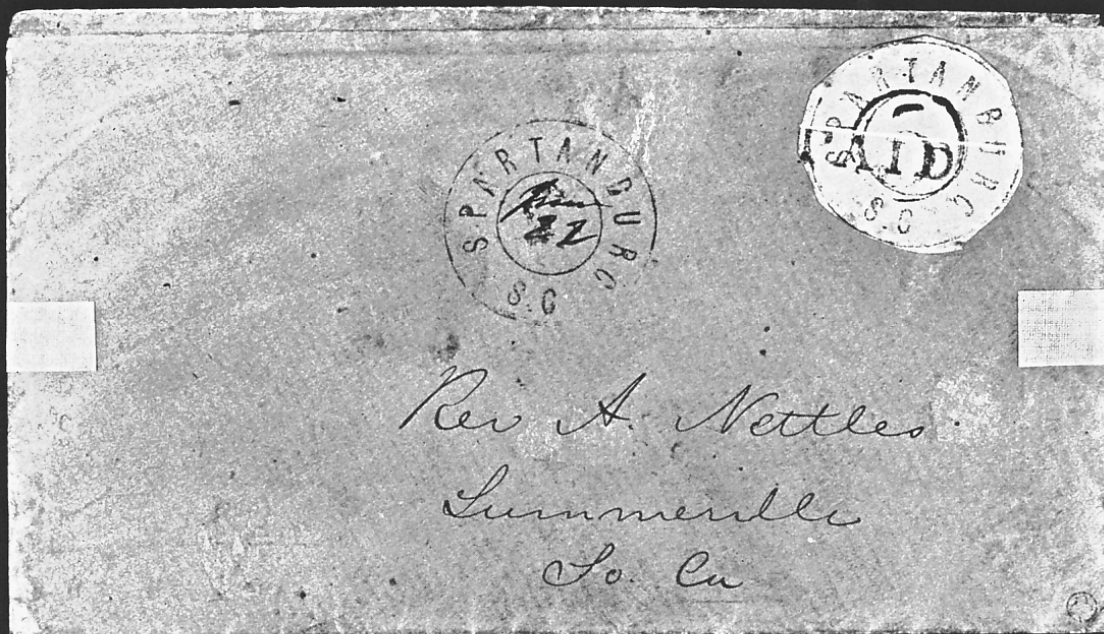 SPARTANBURG
S.C
22
SPARTANBURG
PAID
S.C
Rev A. Nettles
Summerville
So. Ca